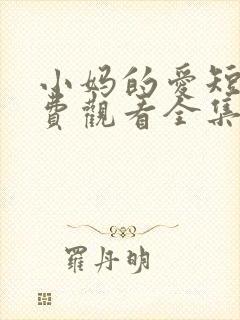 小妈的爱短
费觀看全集
羅丹明